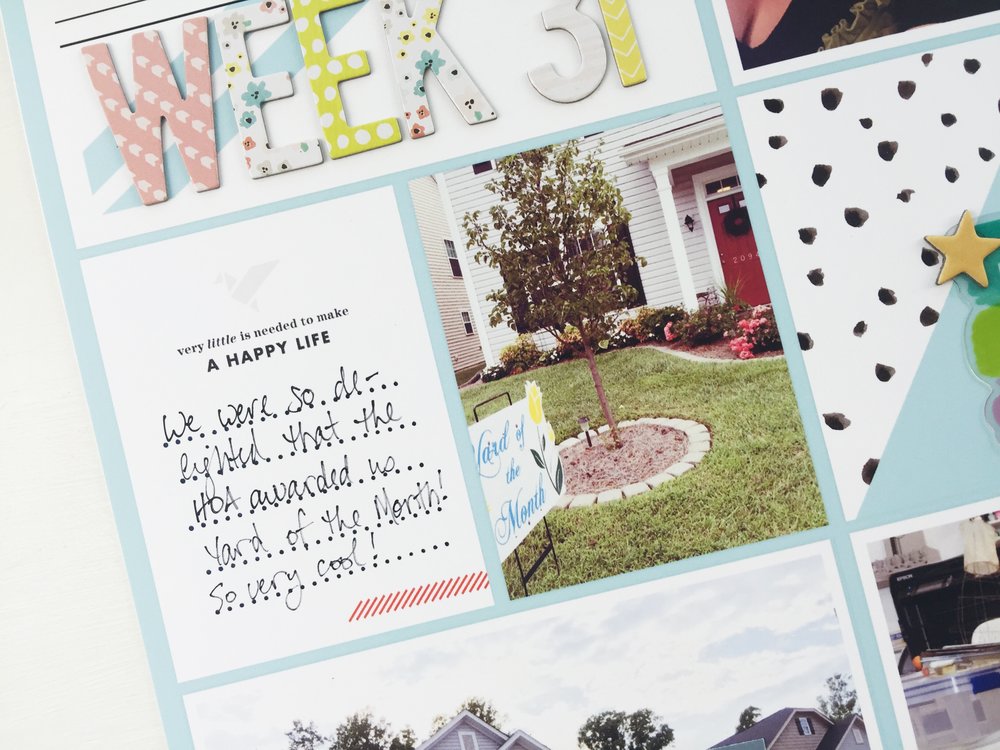 WEEK 31
very little is needed to make
A HAPPY LIFE
We were so de-
lighted that the
HOA awarded us
Yard of the Month!
So very cool!
Yard of
the
Month
2094
EPSON